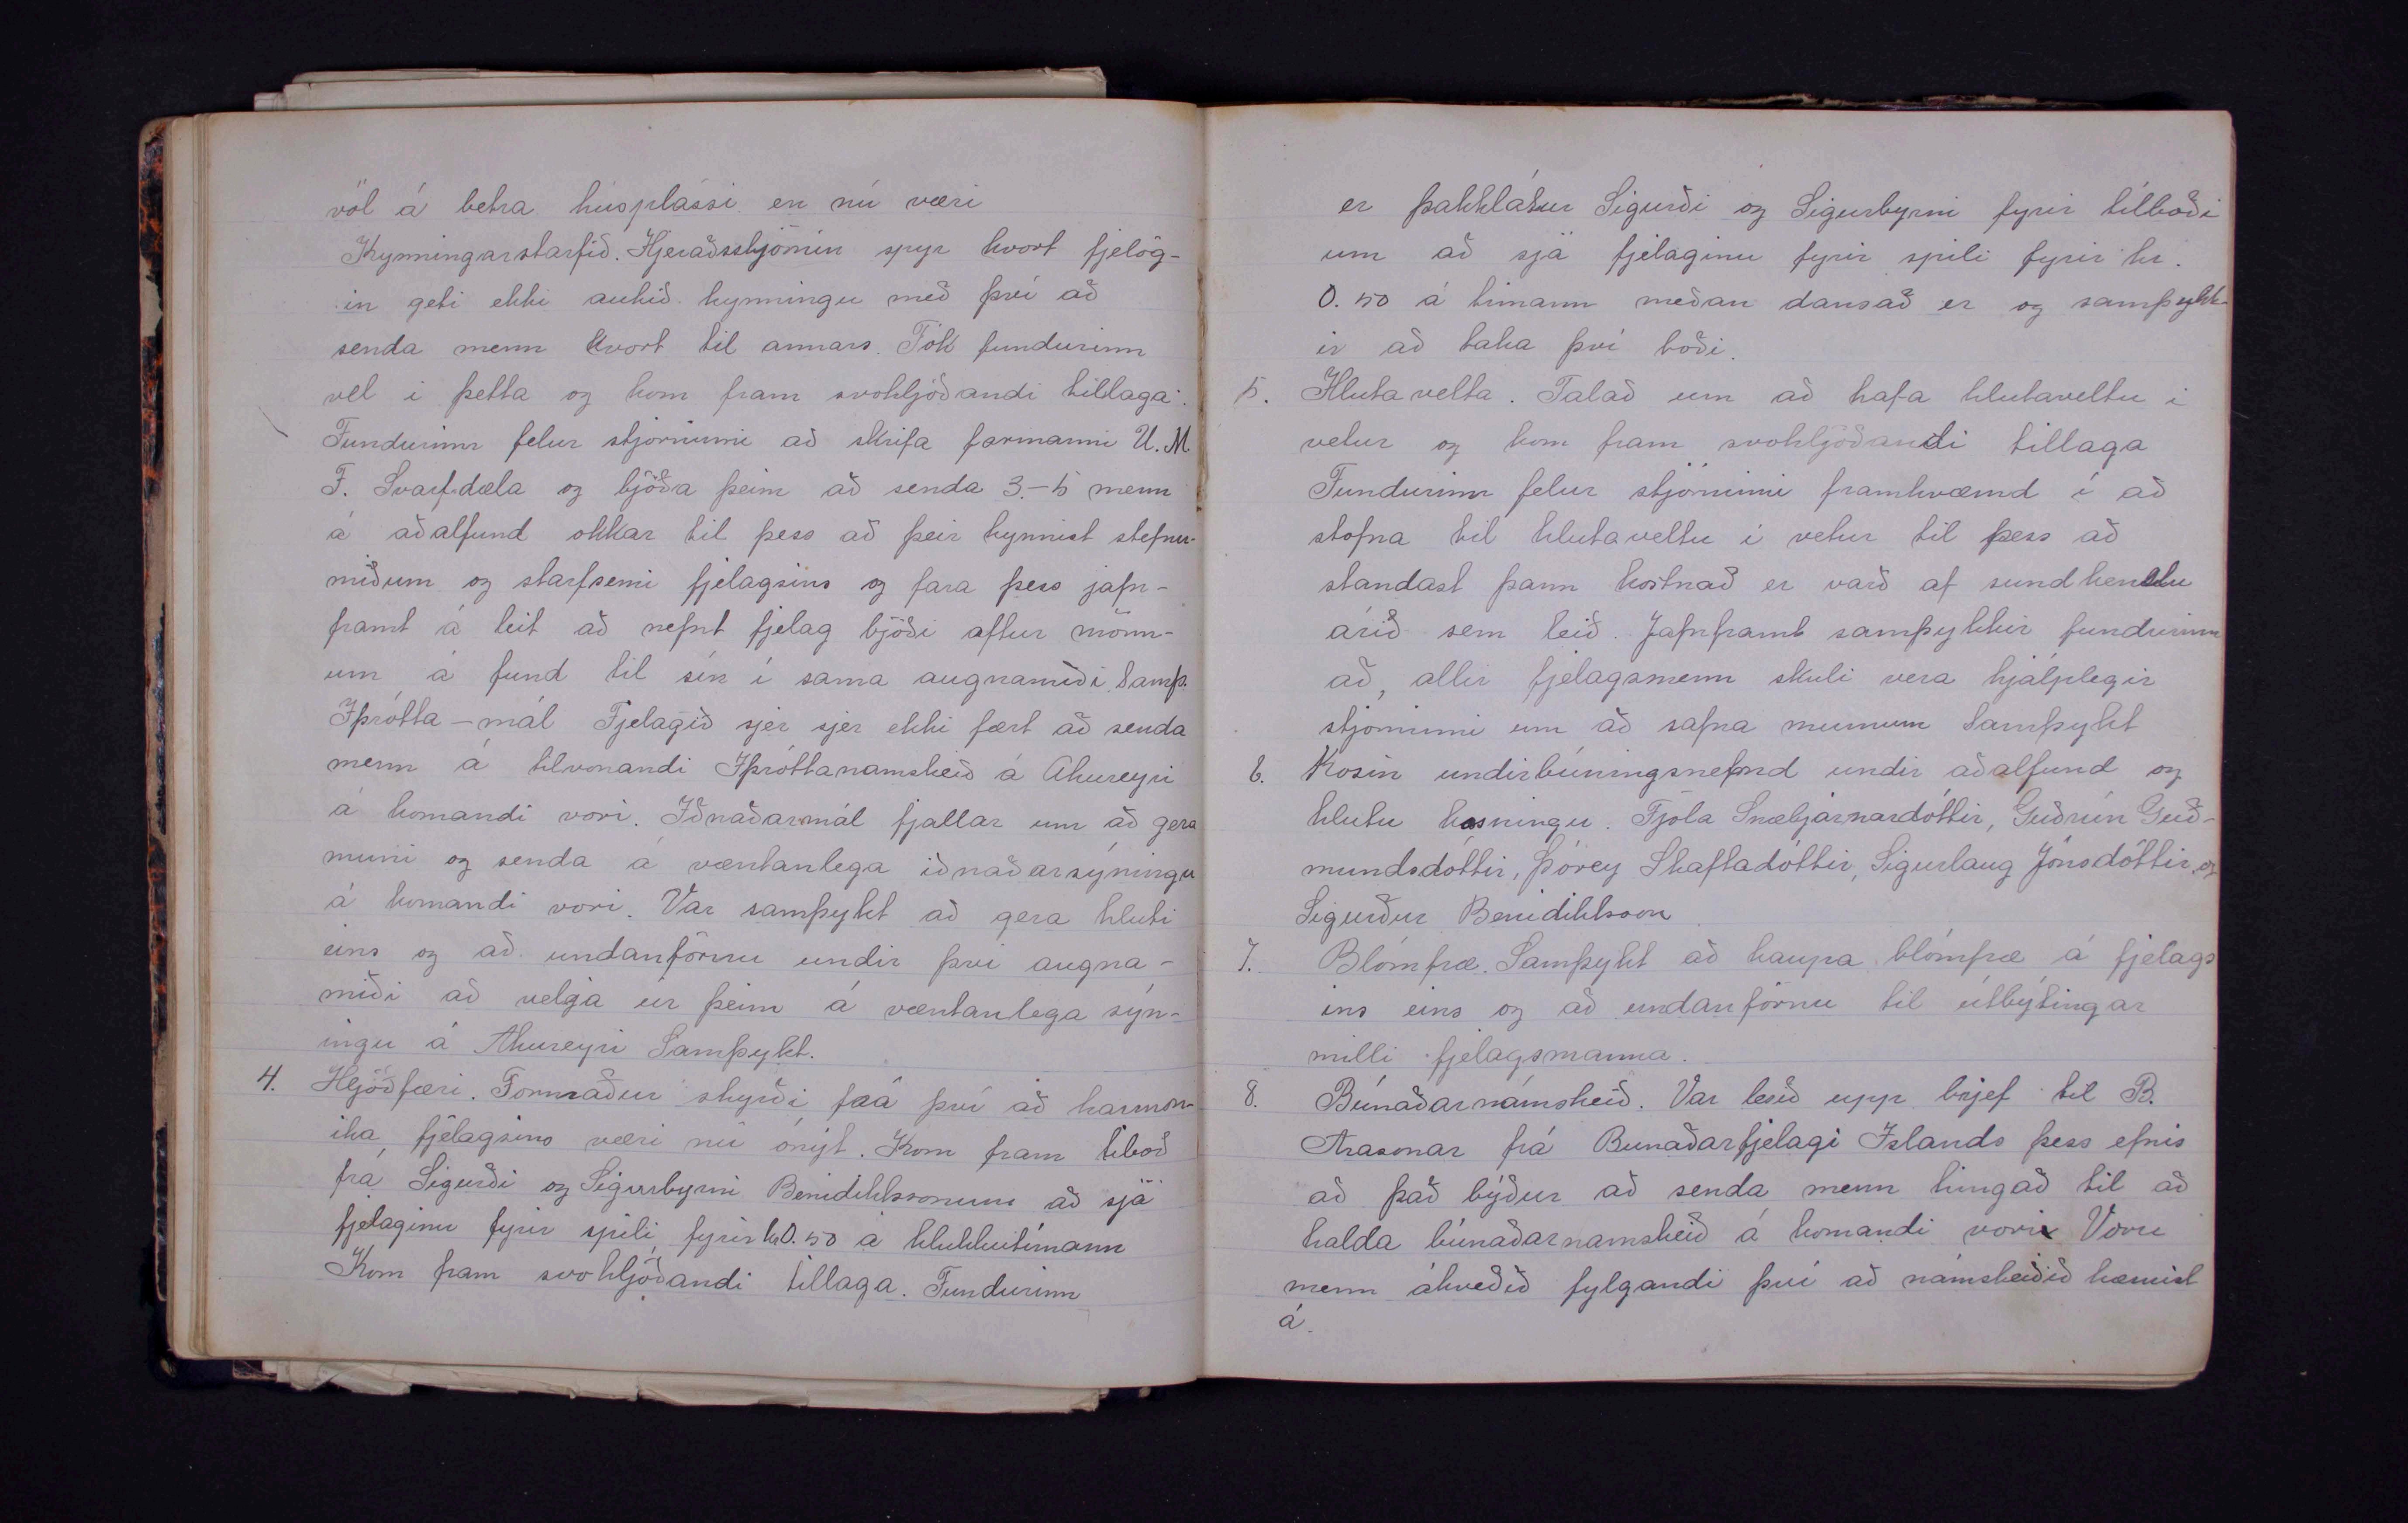 völ á betra húsplássi en nú væri
Kynningarstarfið. Hjeraðsstjórnin spyr hvort fjelög-
in geti ekki aukið kynningu með því að
senda menn hvort til annars. Tók fundurinn
vel i þetta og kom fram svohljóðandi tillaga:
Fundurinn felur stjórninni að skrifa formanni U.M.
F. Svarfdæla og bjóða þeim að senda 3-5 menn
á aðalfund okkar til þess að þeir kynnist stefnu-
miðum og starfsemi fjelagsins og fara þess jafn-
framt á leit að nefnt fjelag bjóði aftur mönn-
um á fund til sín í sama augnamiði Samþ.
Íþrótta-mál Fjelagið sjer sjer ekki fært að senda
menn á tilvonandi Íþróttanamskeið á Akureyri
á komandi vori. Iðnaðarmál fjallar um að gera
muni og senda á væntanlega iðnaðarsýningu
á komandi vori. Var samþykt að gera hluti
eins og að undanförnu undir því augna-
miði að velja úr þeim á væntanlega sýn-
ingu á Akureyri Samþykt.
4. Hljóðfæri. Formaður skyrði frá því að harmon-
ika fjelagsins væri nú ónýt. Kom fram tilboð
frá Sigurði og Sigurbyrni Benidiktssonum að sjá
fjelaginu fyrir spili fyrir kr 0.50 á klukkutímann
Kom fram svohljóðandi tillaga. Fundurinn
er þakklátur Sigurði og Sigurbyrni fyrir tilboði
um að sjá fjelaginu fyrir spili fyrir kr.
0.50 á timann meðan dansað er og samþykk-
ir að taka því boði.
5. Hlutavelta. Talað um að hafa hlutaveltu i
vetur og kom fram svohljóðandi tillaga
Fundurinn felur stjórninni framkvæmd í að
stofna til hlutaveltu í vetur til þess að
standast þann kostnað er varð af sundkenslu
árið sem leið. Jafnframt samþykkir fundurinn
að, allir fjelagsmenn skuli vera hjálplegir
stjórninni um að safna munum Samþykt
6. Kosin undirbúningsnefnd undir aðalfund og
hlutu kosningu. Fjóla Snæbjarnardóttir, Guðrún Guð-
mundsdóttir, Þórey Skaftadóttir, Sigurlaug Jónsdóttir og
Sigurður Benidiktsson
7. Blómfræ. Samþykt að kaupa blómfræ á fjelags
ins eins og að undanförnu til útbýtingar
milli fjelagsmanna.
8. Búnaðarnámskeið. Var lesið upp brjef til B.
Arasonar frá Bunaðarfjelagi Islands þess efnis
að það býður að senda menn hingað til að
halda búnaðarnamskeið á komandi vori Voru
menn ákveðið fylgandi því að námskeiðið kæmist
á.